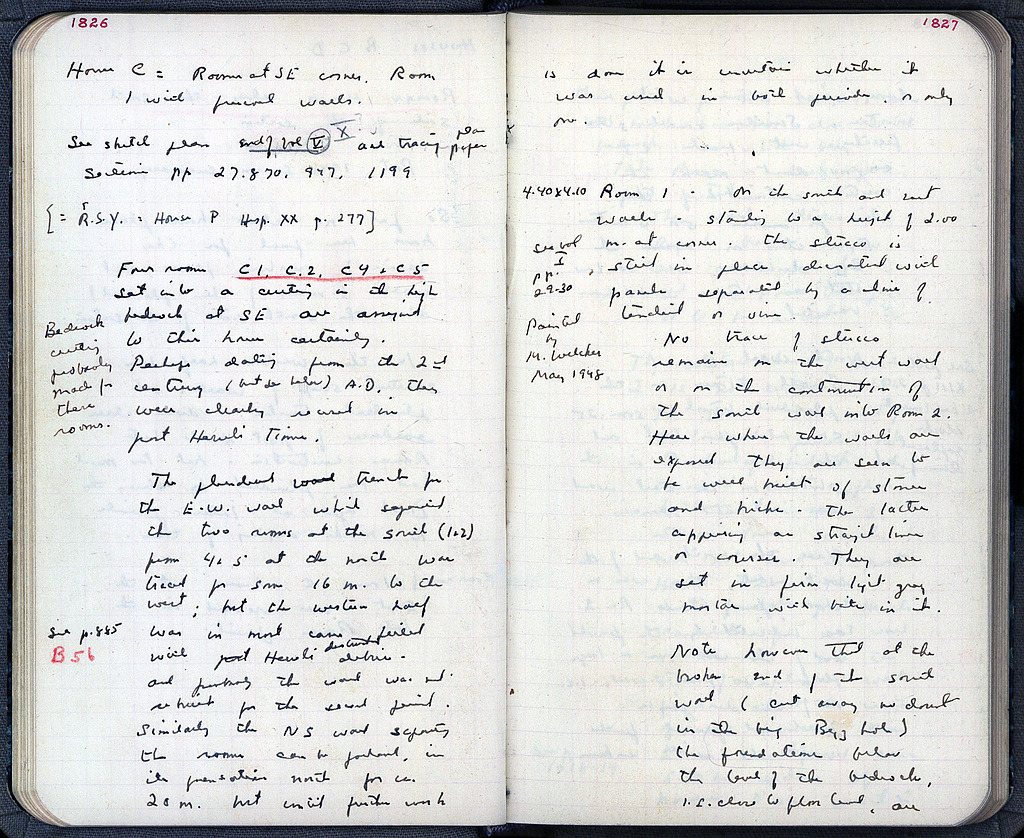 1826
House C = Rooms at SE corner. Room
1 with frescoed walls.
See sketch plan end of vol V X and tracing plan
paper
Sections pp 27.870, 947, 1199
[= R.S.Y. : House P Hesp. XX p. 277]
Four rooms C1, C.2, C4 & C5
set into a cutting in the high
bedrock at SE are assigned
to this house certainly.
Bedrock
cutting
probably
made for
these
rooms.
Perhaps dating from the 2nd
century (but see below) A.D., they
were clearly reused in
post Heruli Times.
The plundered wall trench for
the E-W. wall which separated
the two rooms at the south (1&2)
from 4 & 5 at the north was
traced for some 16 m. to the
west, but the western half
See p. 885
B 56
was in most cases filled
with post Heruli destruct debris.
and probably the wall was not
rebuilt for the second period.
Similarly the NS wall separating
the rooms can be followed, in
its prolongation north for ca.
20 m. but until further work
1827
is done it is uncertain whether it
was used in both periods or only
one.
4.40x4.10 Room 1 - On the south and east
walls - standing to a height of 2.00
see vol
I
pp.
29-30
m. at corner. the stucco is
still in place decorated with
panels separated by a line of
tendril or vine.
Painted
by
M. Welcker
May 1948
No trace of stucco
remains on the west wall
or on the continuation of
the south wall into Room 2.
Here where the walls are
exposed they are seen to
be well built of stones
and bricks - the latter
appearing as straight lines
or courses. They are
set in firm light gray
mortar with bits in it.
Note however that at the
broken end of the south
wall (cut away no doubt
in the big Byz hole)
the foundations below
the level of the bedrock,
i.e. close to floor level, are